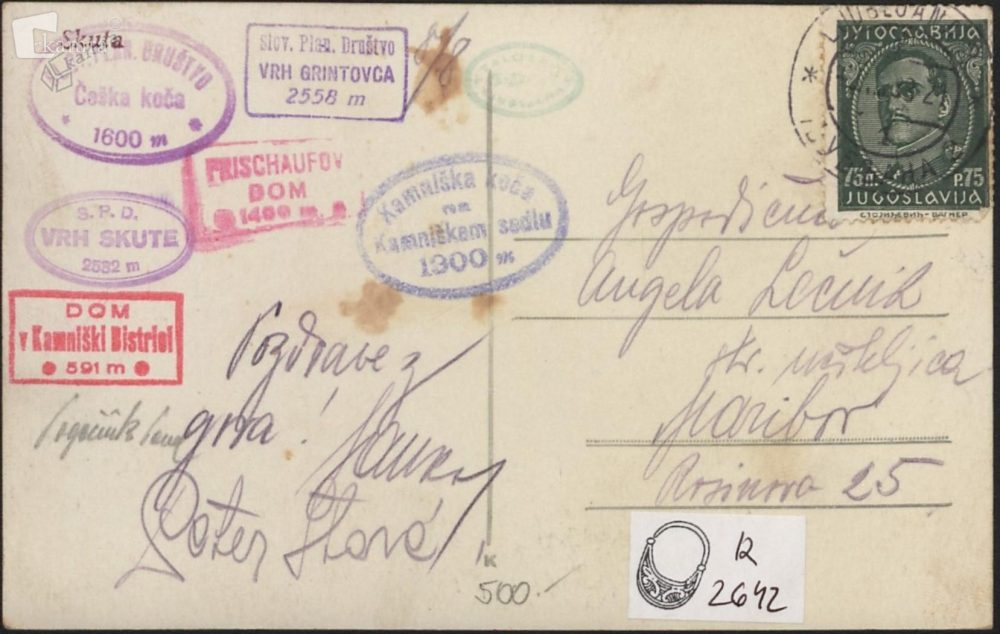 Skuta
PLAN. DRUŠTVO
Češka koča
1600 m
Slov. Plan. Društvo
VRH GRINTOVCA
2558 m
8/8
FRISCHAUFOV
DOM
1400 m
S.P.D.
VRH SKUTE
2532 m
Kamniška koča
na
Kamniškem sedlu
1900 m
DOM
v Kamniški Bistrici
591 m
Pozdrave z
gora!
Peter
ЈУГОСЛАВИЈА
75 П. P. 75
JUGOSLAVIJA
Gospodična
Angela Lečnik
str. učiteljica
Maribor
Rosinova 25
K
500.-
R
2642